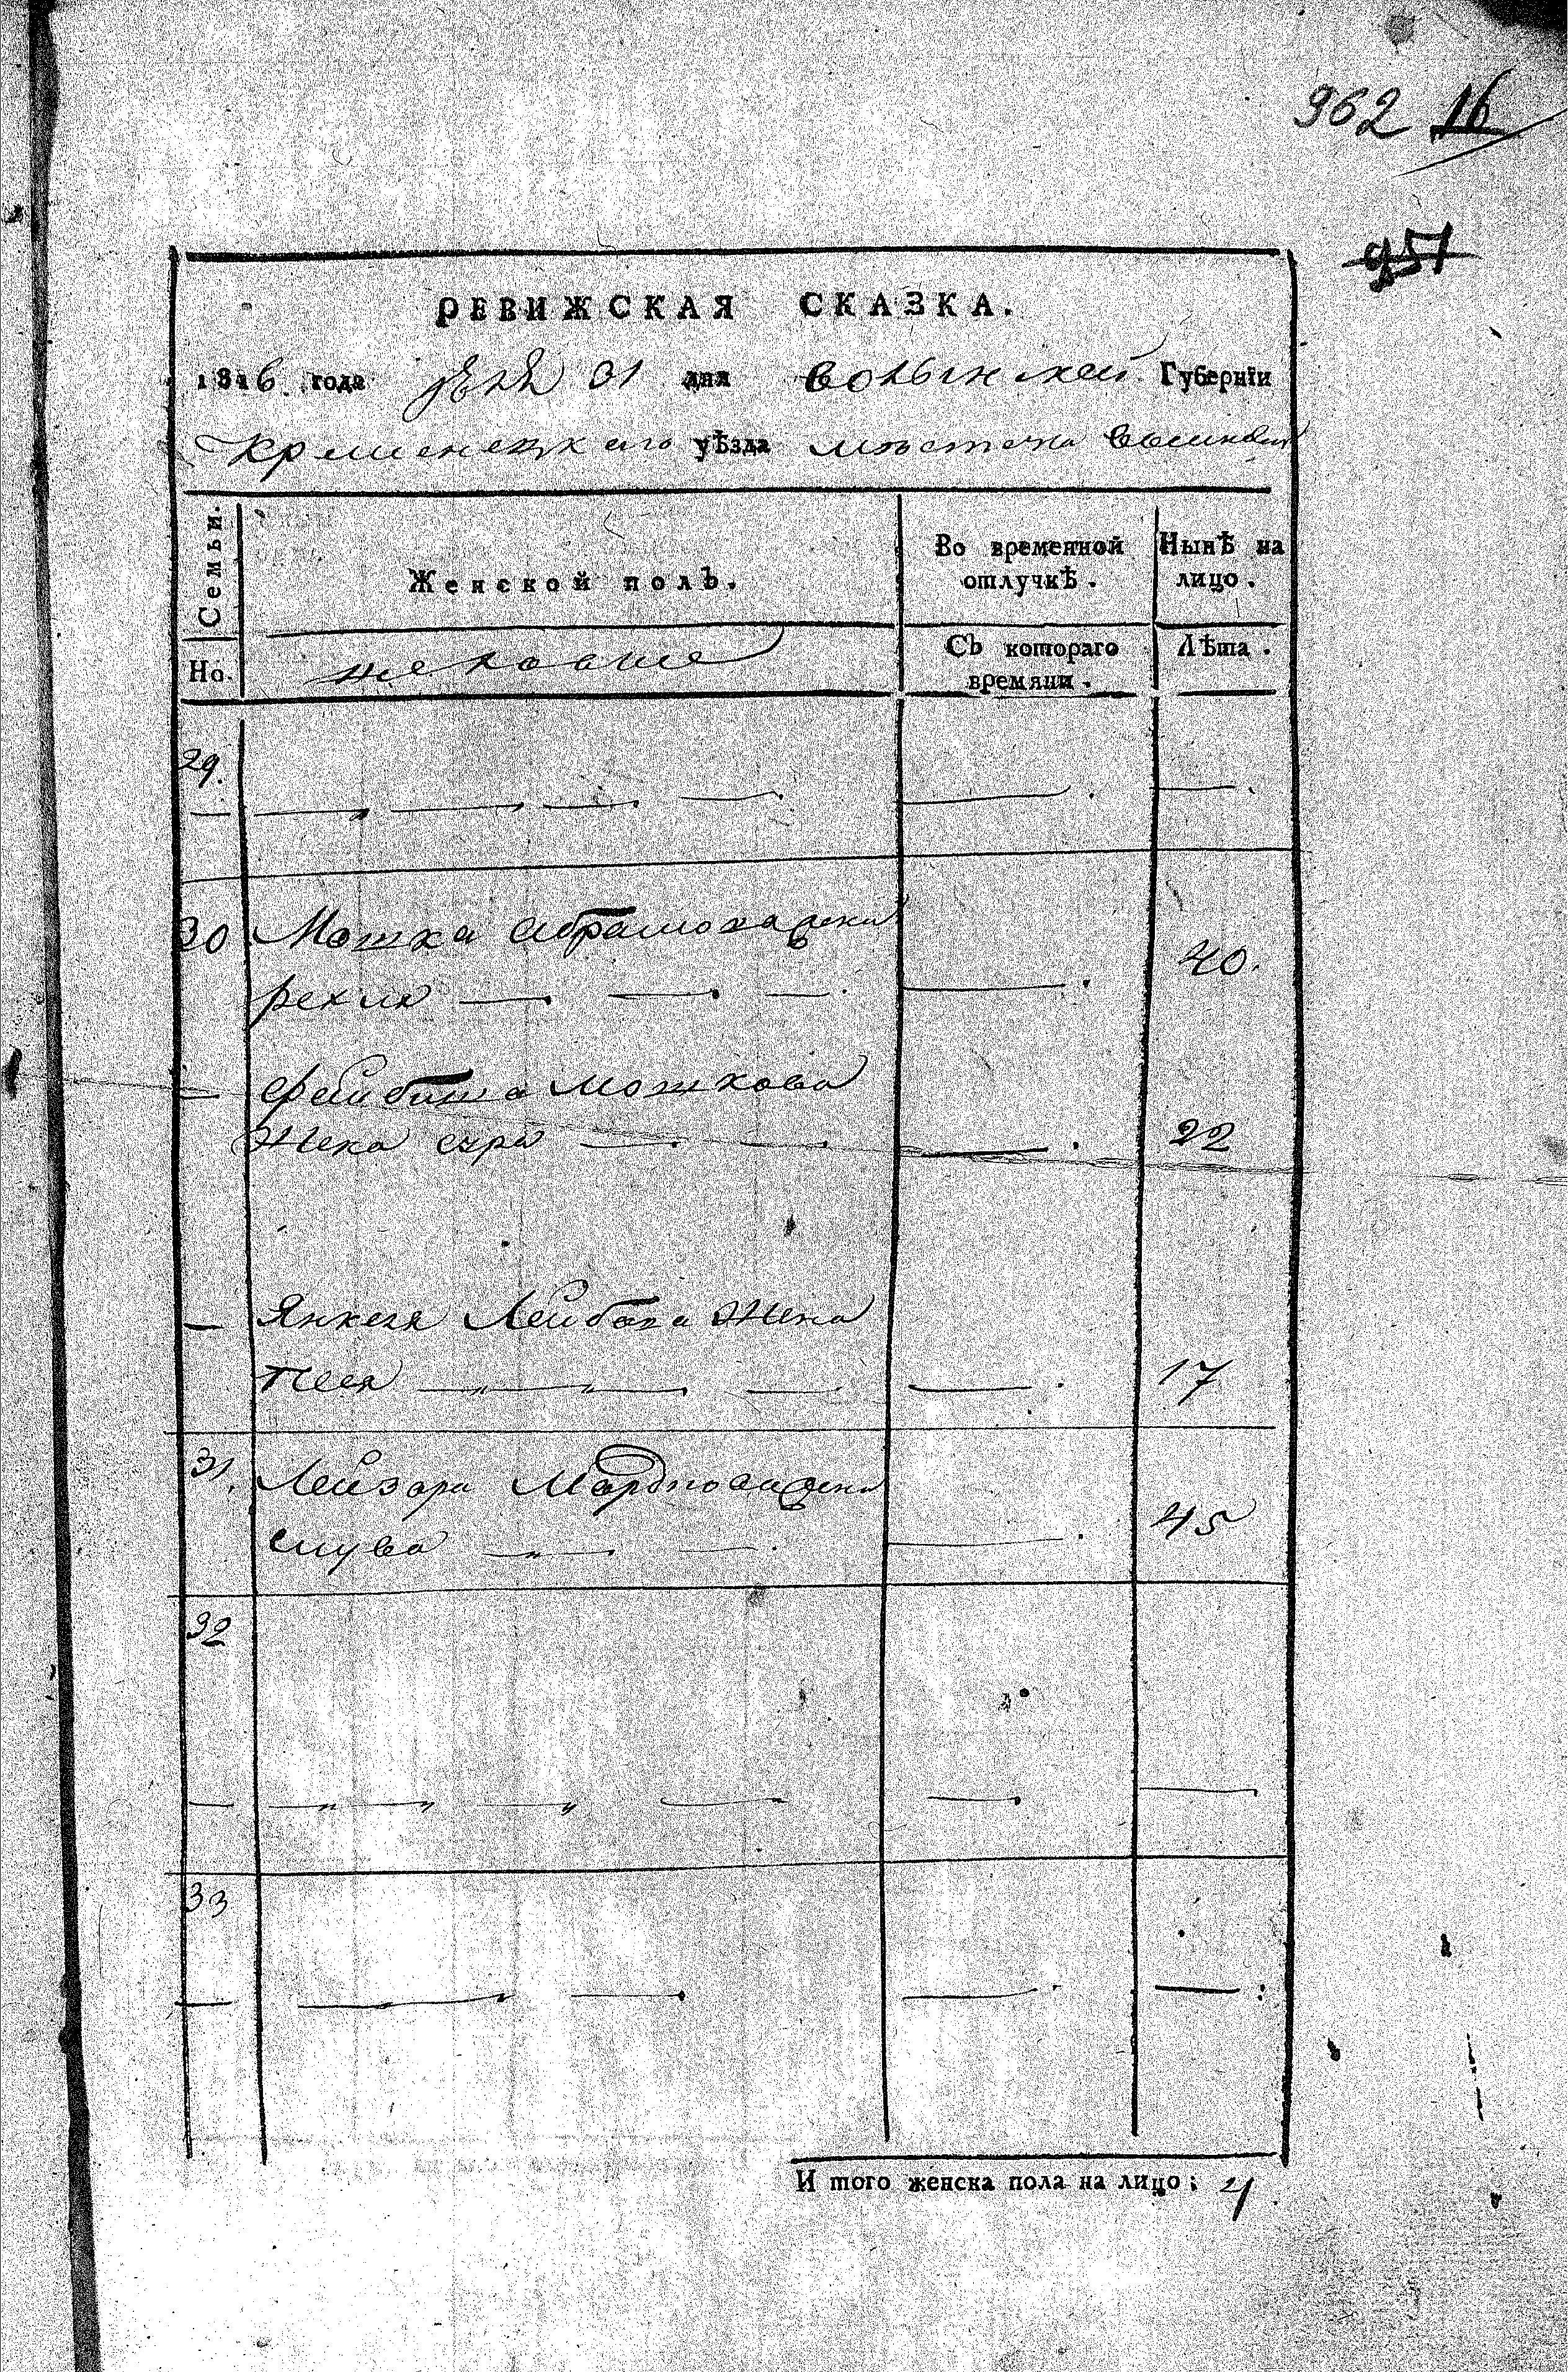 962 16
951
РЕВИЖСКАЯ СКАЗКА.
1816 года 31 дня волынской Губернїи
кременецкаго уѣзда местечка
Семьи.
Женской полъ.
Во временной отлучкѣ.
Нынѣ на лицо.
Но.
Съ котораго времяни.
Лѣта.
29.
30 Мошка Абрамова жена
рехля 40.
Фейбиша мошкова
жена сура 22
Янкеля Лейбова жена
песя 17
31. Лейзора жена
45
32
33
И того женска пола на лицо: 4